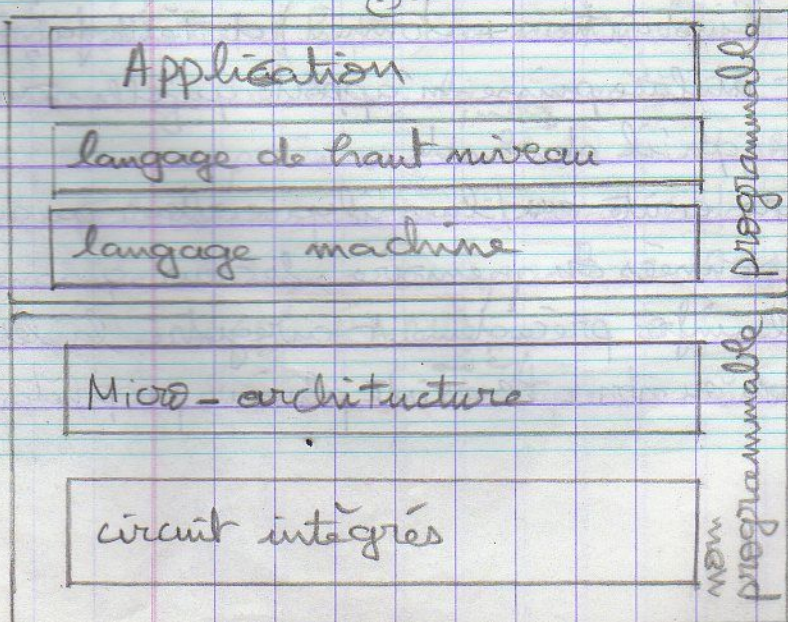 Application
langage de haut niveau
langage machine
programmable
Micro-architucture
circuit intègrés
non
programmable